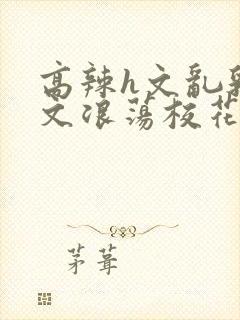 高辣h文乱
文浪荡校花
茅葺